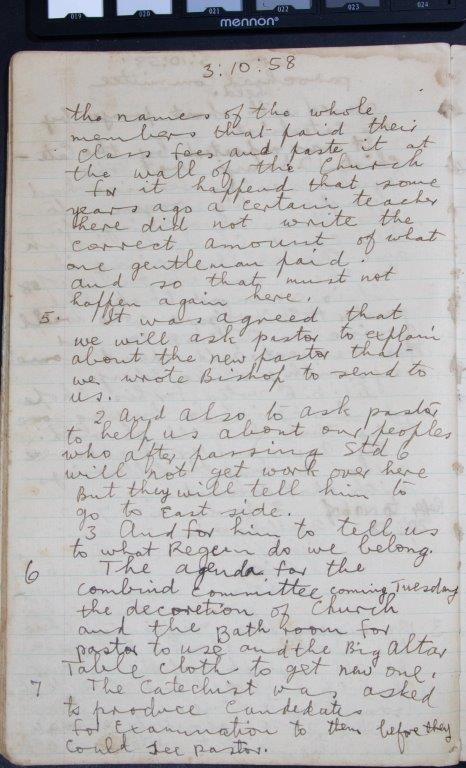 019 020 021 022 023 024
mennon®
3:10:58
the names of the whole
members that paid their
class fees and paste it at
the wall of the Church
for it happend that some
years ago a certain teacher
here did not write the
correct amount of what
one gentleman paid.
and so that must not
happen again here.
5. It was agreed that
we will ask pastor to explain
about the new pastor that
we wrote Bishop to send to
us.
2 And also to ask pastor
to help us about our peoples
who after passing Std 6
will not get work over here
But they will tell him to
go to East side.
3 And for him to tell us
to what Regeun do we belong.
6 The agenda for the
combind committee coming Tuesday
the decoretion of Church
and the Bath room for
pastor to use and the Big Altar
Table cloth to get new one.
7 The Catechist was asked
to produce Candidates
for Examination to them before they
could see pastor.